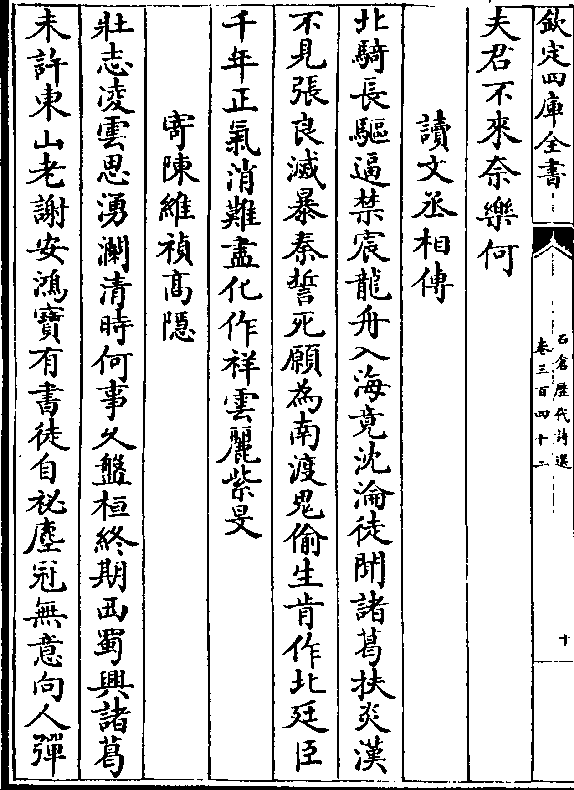 欽定四庫全書
石倉歴代詩選
卷三百四十二
十
夫君不來奈樂何
讀文丞相傳
北騎長驅逼禁宸龍舟入海竟沈淪徒聞諸葛扶炎漢
不見張良滅暴秦誓死願為南渡鬼偷生肯作北廷臣
千年正氣消難盡化作祥雲麗紫旻
寄陳維禎髙隱
壯志凌雲思湧瀾清時何事久盤桓終期西蜀興諸葛
未許東山老謝安鴻寶有書徒自祕塵冠無意向人彈